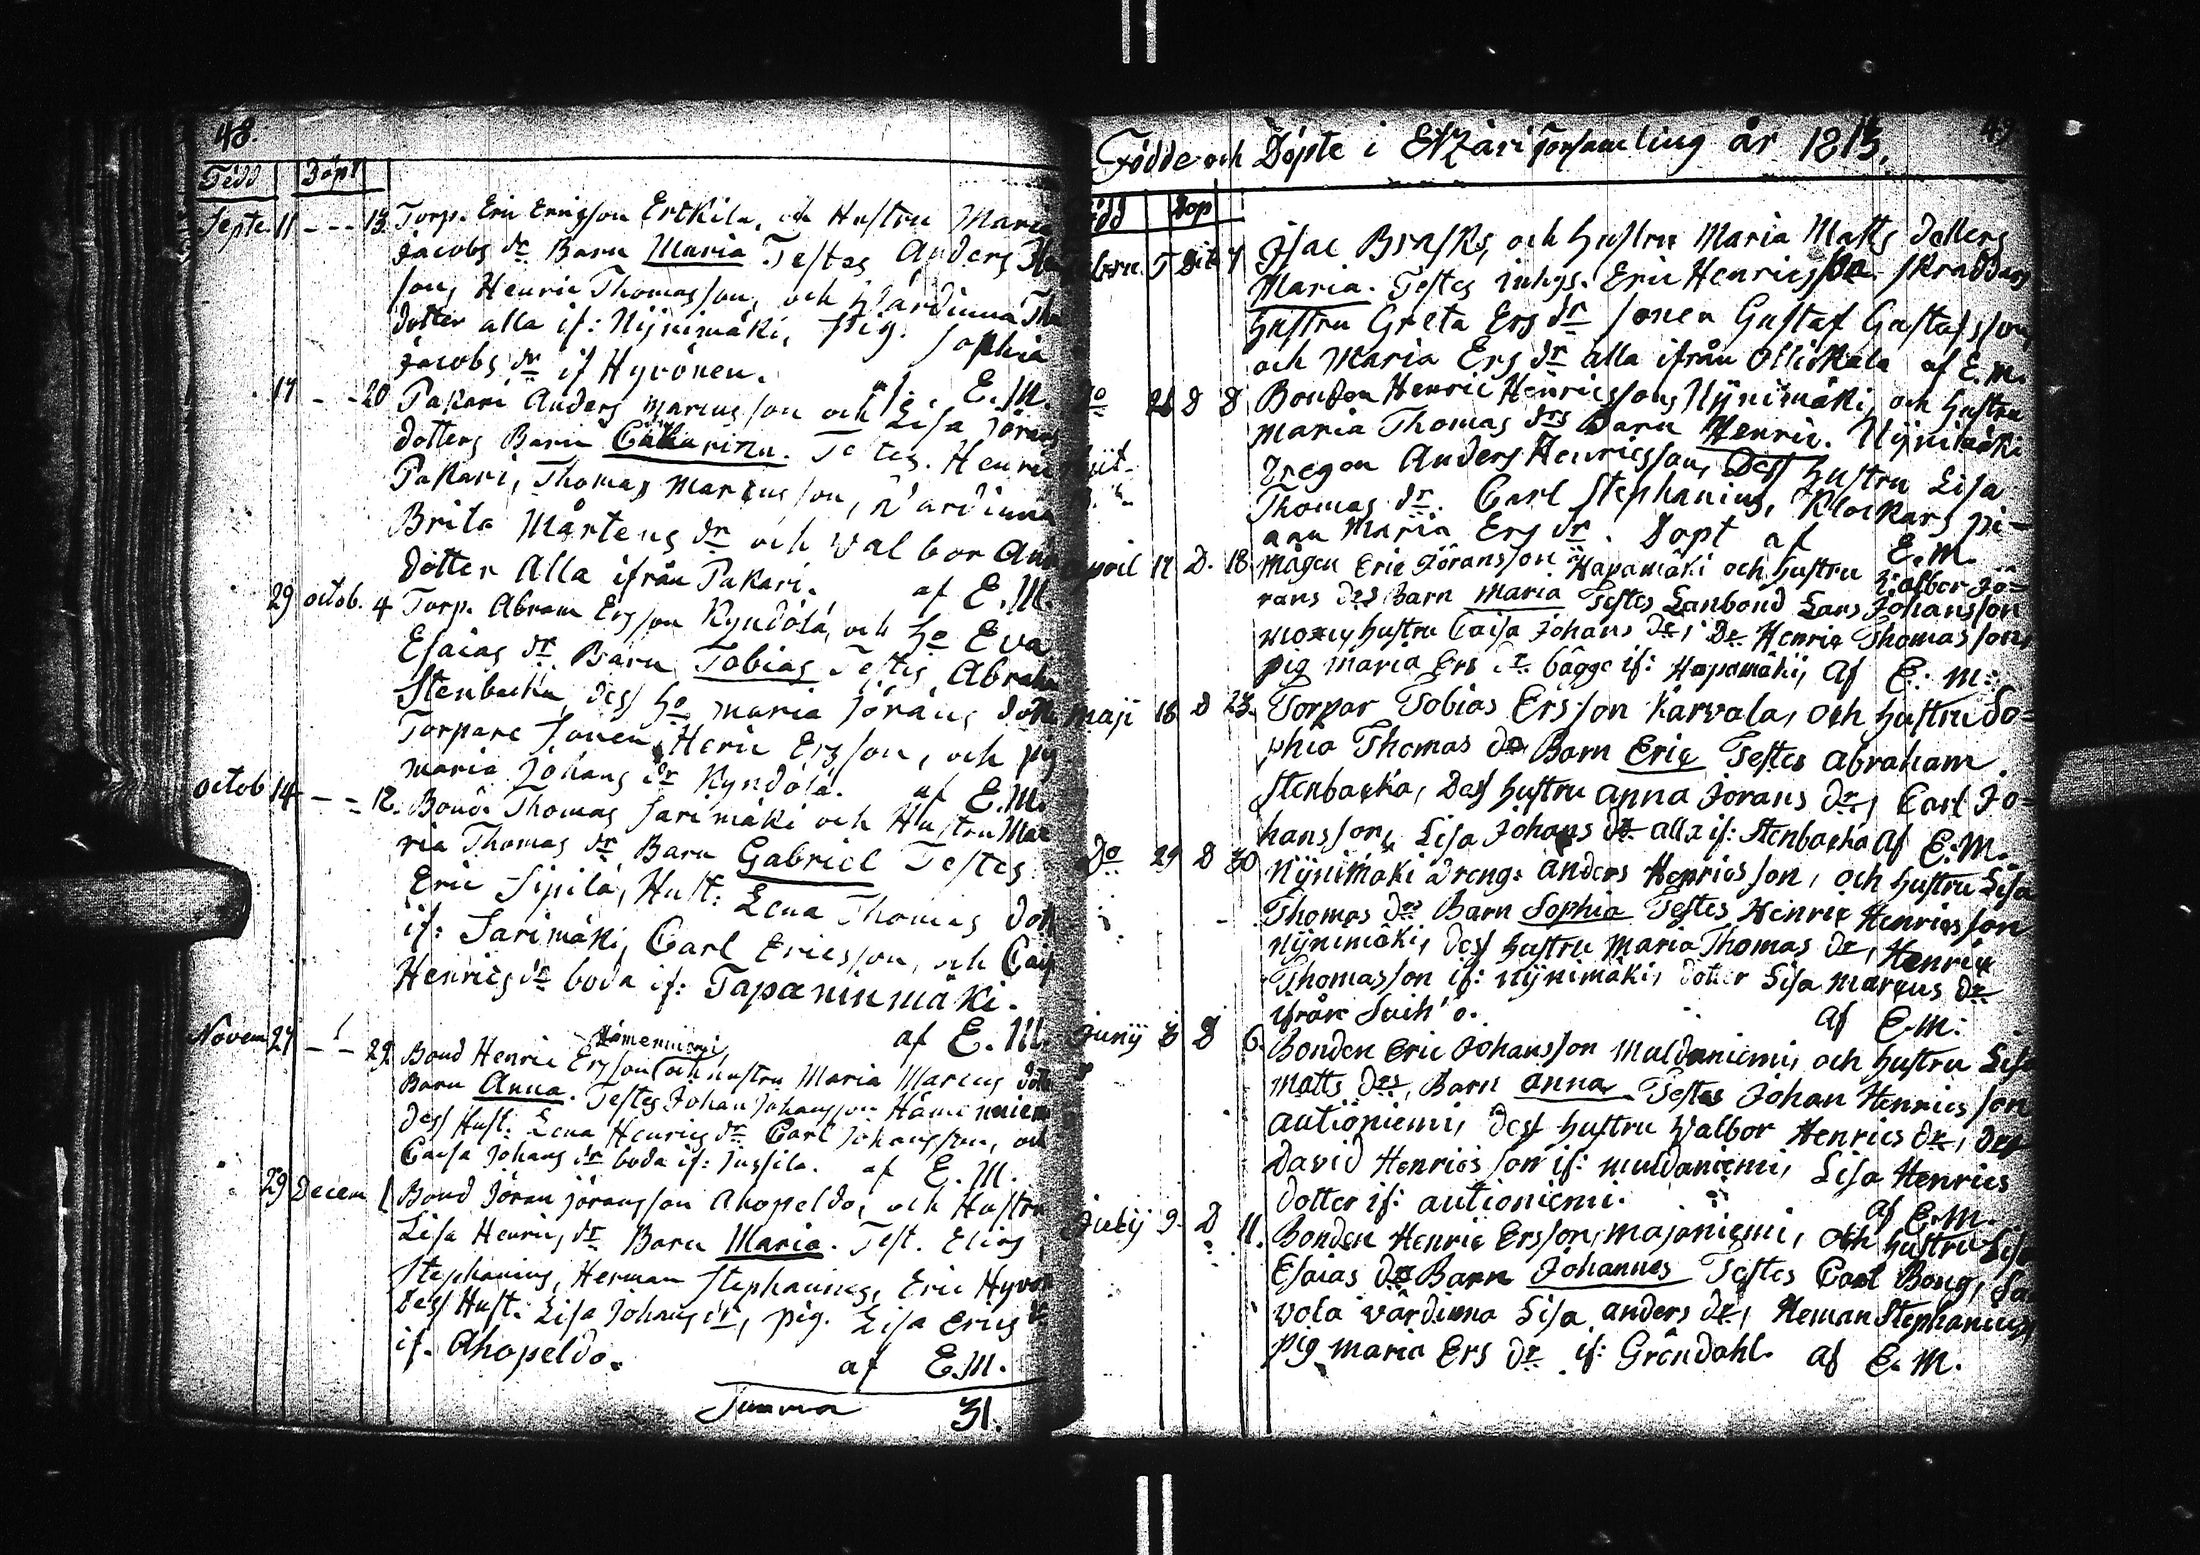 48.
Född Döpt
Septe. 11 - - - 13 Torp. Eric Ericsson Erkkilä, och Hustru Maria
Jacobs dr Barn Maria Testes Anders
son, Henric Thomasson, och Värdinna
dotter alla if: Nÿnimäki, Pig. Sophia
Jacobs dr if Hyvönen. af. E.M.
17 - - 20 Pakari Anders Marcusson och Lisa Jörans
dotters Barn Catharina. Testes. Henric
Pakari, Thomas Marcusson, Vardinna
Brita Mårtens dr och Walbor
dotter Alla ifrån Pakari. af E.M.
29 octob. 4 Torp. Abram Ersson Kyndölä, och Ho Eva
Esaias dr Barn Tobias Testes Abraha
Stenbacka, dess Ho Maria Jörans dott
Torpare Sonen Heric Ersson, och pig
Maria Johans dr Kyndölä. af E.M.
octob 14 - - 18. Bond. Thomas Sarimäki och Hustru Ma
ria Thomas dr Barn Gabriel Testes
Eric Sipilä, Hust: Lena Thomas dott
if: Sarimäki, Carl Ericsson, och Caj
Henrics dr boda if: Tapaninmäki.
af E.M.
Novem 27 - - 29 Bond Henric Ersson Hämenniemi och hustru Maria Marcus dott
Barn Anna. Testes Johan Johansson Hämenniem
dess Hust: Lena Henrics dr Carl Johansson, och
Caisa Johans dr boda if: Jussila. af E.M.
29 Decem 1 Bond Jöran Jöransson Ahopeldo, och Hustru
Lisa Henrics dr Barn Maria. Test. Elias
Stephanius, Herman Stephanius, Eric Hyvön
dess Hust: Lisa Johans dr, pig. Lisa Erics dr
if. Ahopeldo. af E.M.
Summa 31.
Födde och Döpte i Etzäri Församling år 1813. 49
Född Döp
Dito 7 Isac Brask, och Hustru Maria Matts dotters
Maria. Testes inhys. Eric Henricsson skraddars
Hustru Greta Ers dr sonen Gustaf Gustafsson
och Maria Ers dr alla ifrån Ollikkala af E.M.
Do 28 D Bonden Henric Henricsson, Nÿnimäki, och Hustru
Maria Thomas drs Barn Henric. Nÿnimäki
Dregon Anders Henricsson, Dess Hustru Lisa
Thomas dr. Carl Stephanius, Klockars pi-
gan Maria Ers dr. Döpt af E.M.
April 17 D. 18 Mågen Eric Jöransson Hapamäki och Hustru Walbor Jö=
rans drs Barn Maria Testes Lanbond Lars Johansson
Hustru Caisa Johans dr, Dr Henric Thomasson,
Pig Maria Ers dr. bägge if: Hapamäki, af E: M:
Maji 18 D 23 Torpar Tobias Ersson Karvala, och Hustru So=
phia Thomas dr Barn Eric Testes Abraham
Stenbacka, Dess Hustru Anna Jorans dr, Carl Jo=
hansson, Lisa Johans dr alla if: Stenbacka af E.M.
Do 29 D 30 Nÿnimäki dreng: Anders Henricsson, och Hustru Lisa
Thomas drs Barn Sophia Testes Henric Henricsson
Nÿnimäki, dess Hustru Maria Thomas dr, Henric
Thomasson if: Nÿnimäki, dotter Lisa Marcus dr
ifrån af E.M:
Junij 3 D 6. Bonden Eric Johansson Muldaniemi, och Hustru Lisa
Matts drs, Barn Anna Testes Johan Henricsson
Autioniemi, dess Hustru Walbor Henrics dr, dr
David Henricsson if: Muldaniemi, Lisa Henrics
dotter if: Autioniemi. af E.M.
Julij 9. D 11. Bonden Henric Ersson, Majaniemi, och Hustru Lisa
Esaias drs Barn Johannes Testes Carl Bong, Sa
vola värdinna Lisa Anders dr, Heman Stephanius,
Pig Maria Ers dr if: Gröndahl. af E.M.